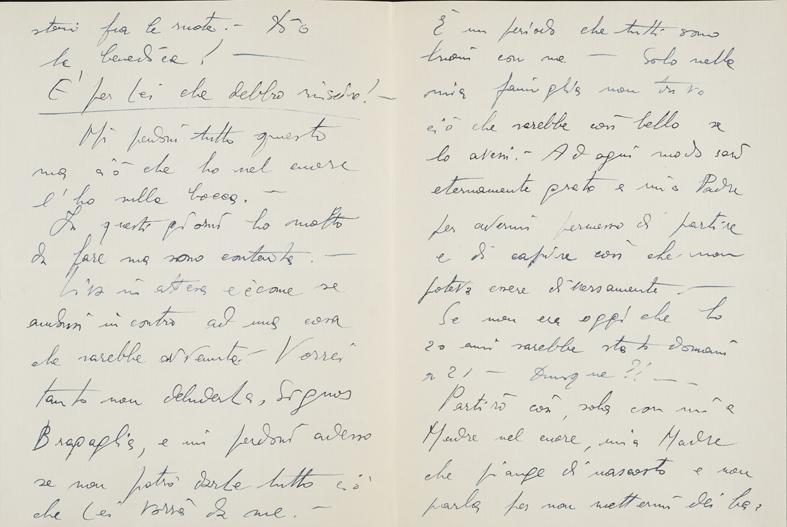 stare fra le ruote. - Dio
la benedica! -
E' per Lei che debbo riuscire! -
Mi perdoni tutto questo
ma ciò che ho nel cuore
l'ho nella bocca. -
In questi giorni ho molto
da fare ma sono contenta. -
Vivo in attesa e è come se
andassi incontro ad una cosa
che sarebbe avvenuta - Vorrei
tanto non deluderla, Signor
Bragaglia, e mi perdoni adesso
se non potrò darle tutto ciò
che Lei vorrà da me. -
È un periodo che tutti sono
buoni con me - Solo nella
mia famiglia non trovo
ciò che sarebbe così bello se
lo avessi. - Ad ogni modo sarò
eternamente grata a mio Padre
per avermi permesso di partire
e di capire così che non
poteva essere diversamente -
Se non era oggi che ho
20 anni sarebbe stato domani
a 21 - Dunque?! -
Partirò così, sola con mia
Madre nel cuore, mia Madre
che piange di nascosto e non
parla per non mettermi dei ba: